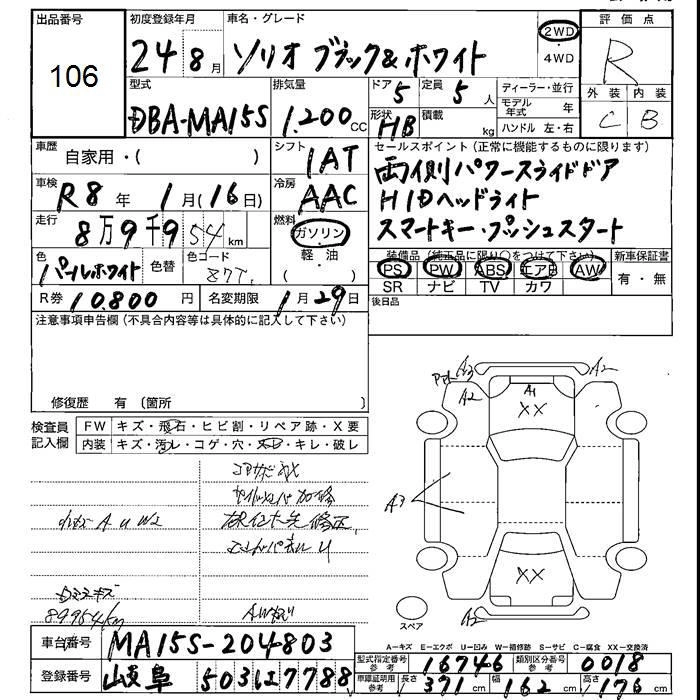 出品番号 初度登録年月 車名・グレード 評価点
106 24 8月 ソリオ ブラック&ホワイト 2WD ・ 4WD R
型式 排気量 ドア 定員 ディーラー・並行 外装 内装
DBA-MA15S 1,200cc 5 5人 モデル年式 年 C B
形状 HB 積載 kg ハンドル 左・右
車歴 自家用・( ) シフト 1AT セールスポイント(正常に機能するものに限ります)
車検 R8年 1月(16日) 冷房 AAC 両側パワースライドドア
HIDヘッドライト
走行 8万9千954km 燃料 ガソリン・軽・油( ) スマートキー・プッシュスタート
色 パールホワイト 色替 色コード 装備品(純正品に限り○をつけて下さい) 新車保証書
PS PW ABS エアB AW 有・無
SR ナビ TV カワ
R券 10,800円 名変期限 1月29日 後日品
注意事項申告欄(不具合内容等は具体的に記入して下さい)
修復歴 有(箇所 )
検査員記入欄 FW キズ・飛石・ヒビ割・リペア跡・X要
内装 キズ・汚レ・コゲ・穴・キレ・破レ
A3 A2
A2 A1
XX
A3
XX
A2
小キズ A U W2
89954km
スペア
A-キズ E-エクボ U-凹み W-補修跡 S-サビ C-腐食 XX-交換済
車台番号 MA15S-204803
型式指定番号参考 16746 類別区分番号参考 0018
登録番号 岐阜 503 7788
車庫証明用参考 長さ 371cm 幅 162cm 高さ 176cm